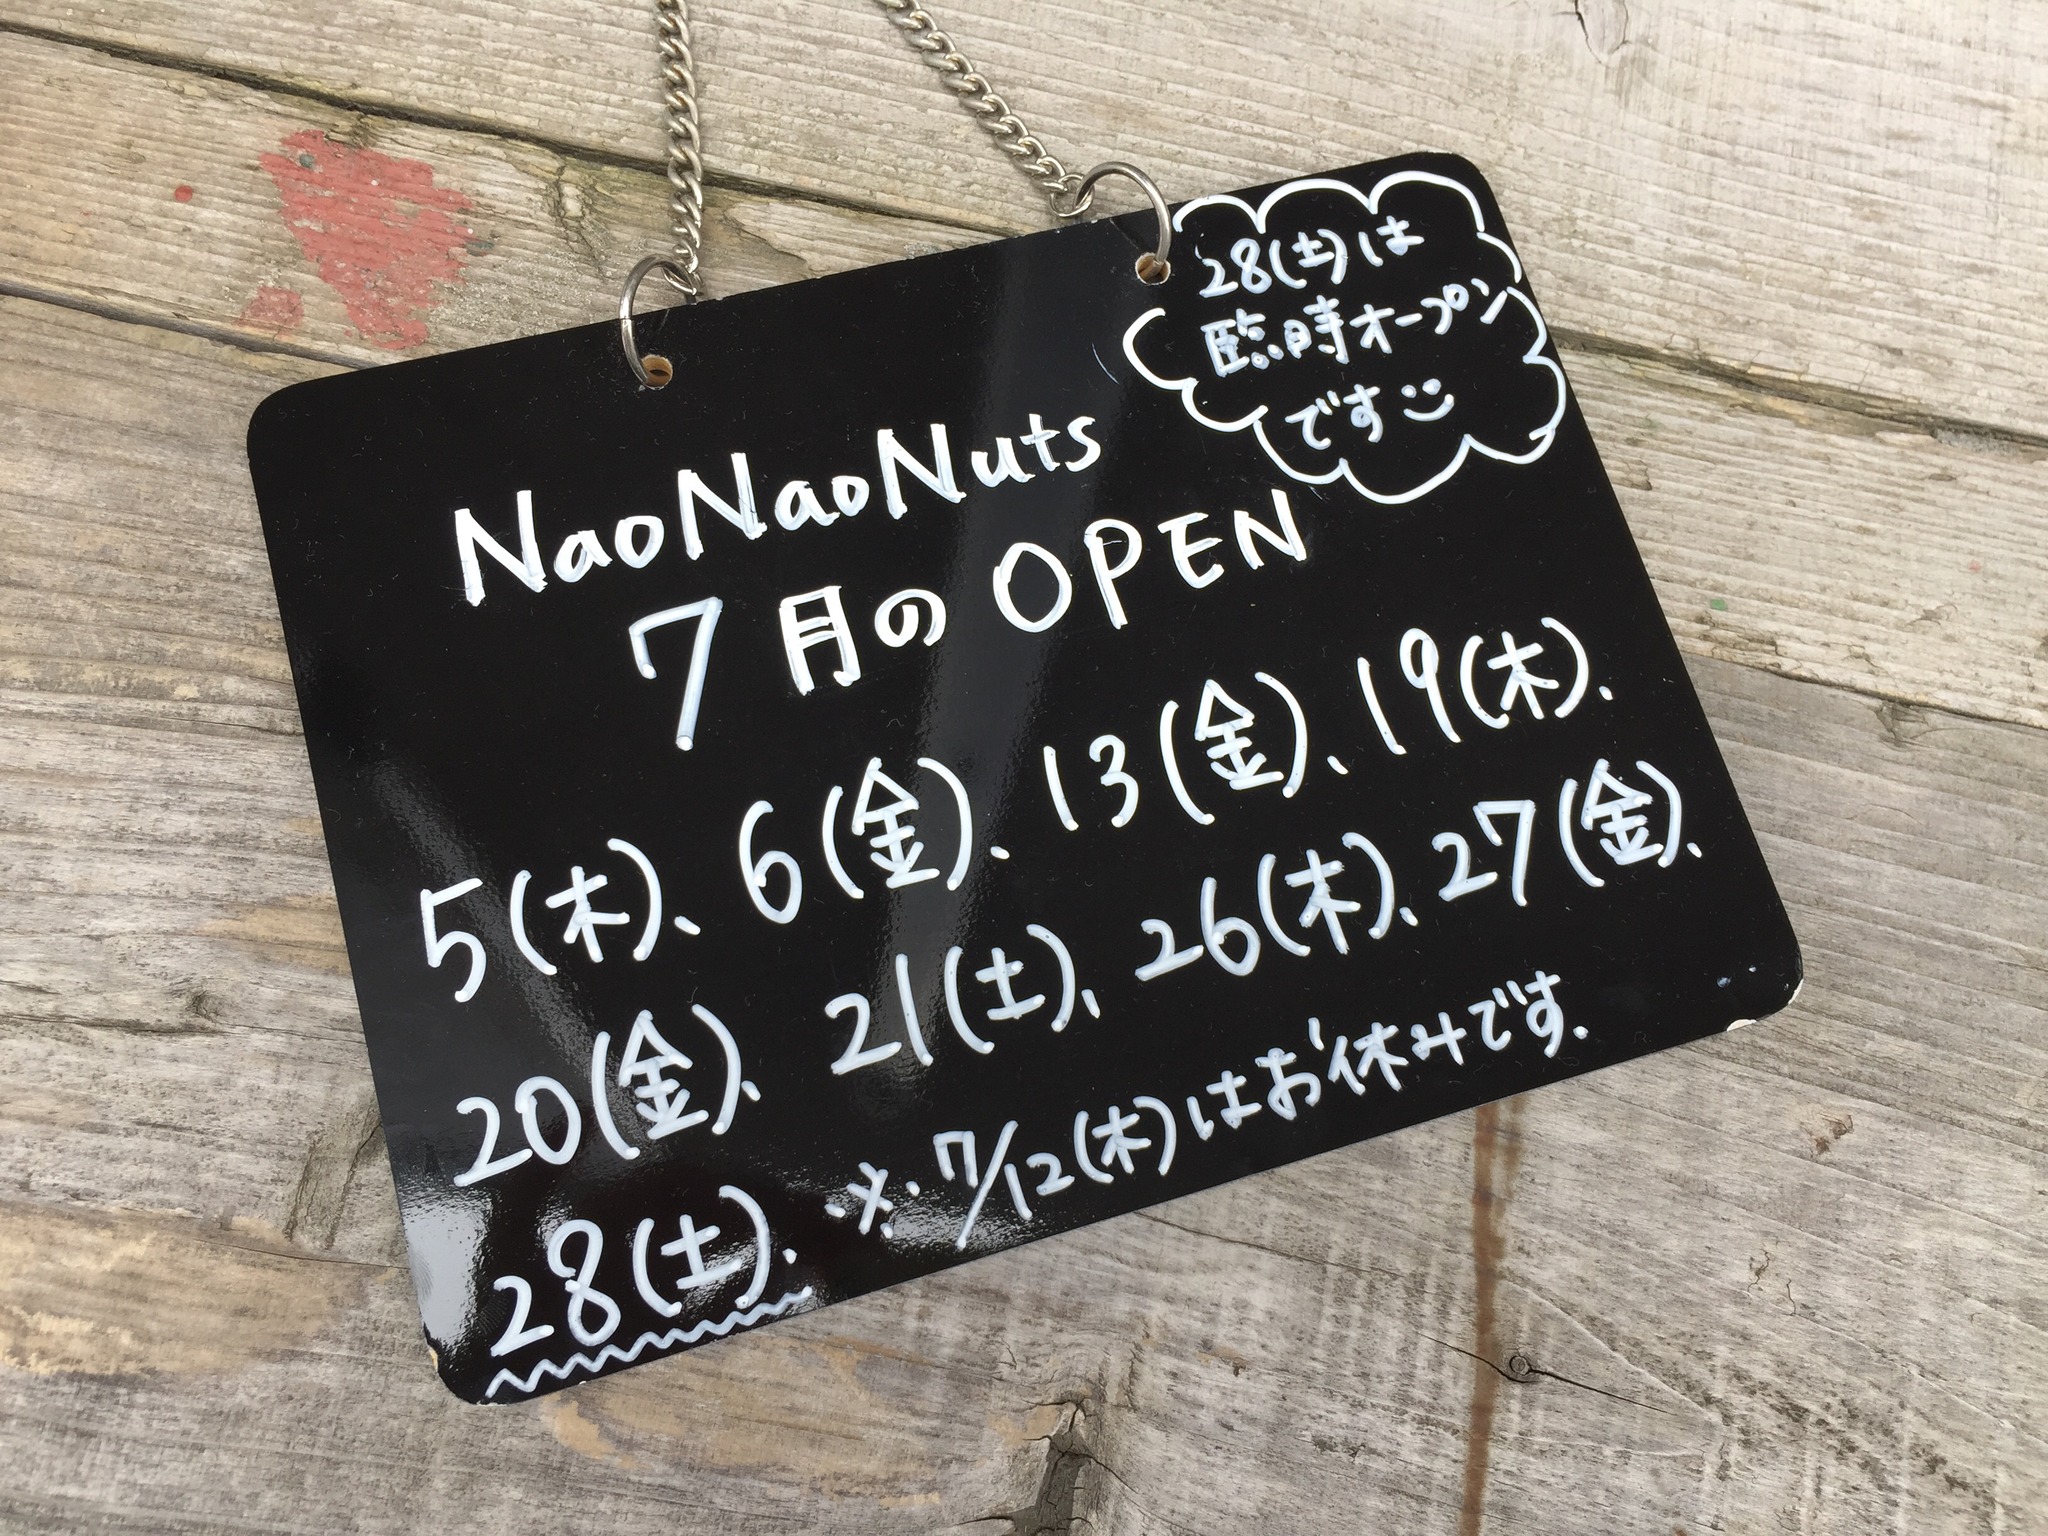 28(土)は
臨時オープン
です
NaoNaoNuts
7月のOPEN
5(木)、6(金)、13(金)、19(木)、
20(金)、21(土)、26(木)、27(金)、
28(土)、※7/12(木)はお休みです。